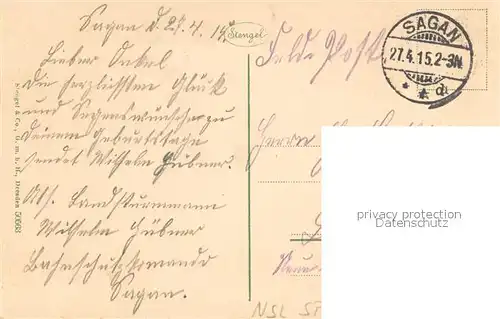 Sagan d. 27.4.15
Stengel
Lieber Onkel
Die herzlichsten Glück
und Segenswünsche zu
Deinem Geburtstage
sendet Wilhelm Hübner.
Abs. Landsturmmann
Wilhelm Hübner
Bahnschutzkomando
Sagan.
Stengel & Co., G. m. b. H., Dresden 50663
Feld Post
SAGAN
27.4.15.2-3N
* * d
Herrn
privacy protection
Datenschutz
NSL